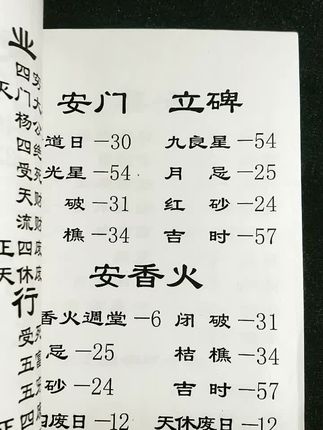 安门 立碑
道日—30 九良星—54
光星—54 月忌—25
破—31 红砂—24
樵—34 吉时—57
安香火
香火週堂—6 闭破—31
忌—25 枯樵—34
砂—24 吉时—57
废日—12 天休废日—12
业
四门杨四受天流四天
大公绝死财财废废
行
受五五四